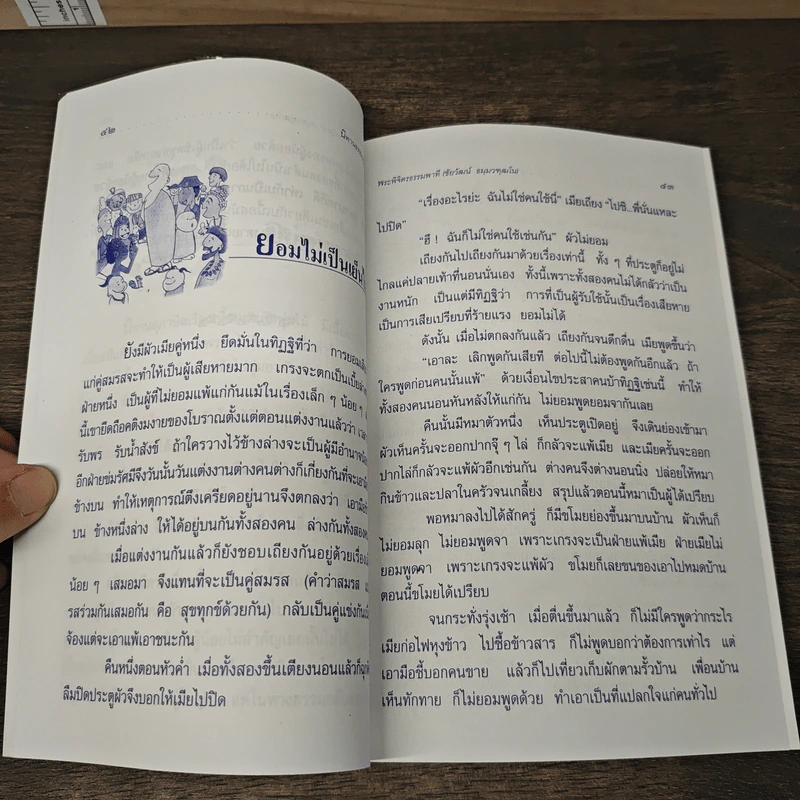 inches
๔๒
ยอมไม่เป็นเย็น
ยังมีผัวเมียคู่หนึ่ง ยึดมั่นในทิฏฐิที่ว่า การยอม
แก่คู่สมรสจะทำให้เป็นผู้เสียหายมาก เกรงจะตกเป็นเบี้ยล่าง
ฝ่ายหนึ่ง เป็นผู้ที่ไม่ยอมแพ้แก่กันแม้ในเรื่องเล็ก ๆ น้อย ๆ
นี้เขายึดถือคติงมงายของโบราณตั้งแต่ตอนแต่งงานแล้วว่า
รับพร รับน้ำสังข์ ถ้าใครวางไว้ข้างล่างจะเป็นผู้มีอำนาจ
อีกฝ่ายข่มรัศมีจึงวันนั้นวันแต่งงานต่างคนต่างก็เกี่ยงกันที่จะเอา
ข้างบน ทำให้เหตุการณ์ตึงเครียดอยู่นานจึงตกลงว่า เอามือ
บน ข้างหนึ่งล่าง ให้ได้อยู่บนกันทั้งสองคน ล่างกันทั้ง
เมื่อแต่งงานกันแล้วก็ยังชอบเถียงกันอยู่ด้วยเรื่อง
น้อย ๆ เสมอมา จึงแทนที่จะเป็นคู่สมรส (คำว่าสมรส
รสร่วมกันเสมอกัน คือ สุขทุกข์ด้วยกัน) กลับเป็นคู่แข่งกัน
จ้องแต่จะเอาแพ้เอาชนะกัน
คืนหนึ่งตอนหัวค่ำ เมื่อทั้งสองขึ้นเตียงนอนแล้วก็
ลืมปิดประตูผัวจึงบอกให้เมียไปปิด
พระพิจิตรธรรมพาที (ชัยวัฒน์ ธมฺมวฑฺฒโน)
๔๓
“เรื่องอะไรย่ะ ฉันไม่ใช่คนใช้นี่” เมียเถียง “ไปซิ...พี่นั่นแหละ
ไปปิด”
“ฮึ ! ฉันก็ไม่ใช่คนใช้เช่นกัน” ผัวไม่ยอม
เถียงกันไปเถียงกันมาด้วยเรื่องเท่านี้ ทั้ง ๆ ที่ประตูก็อยู่ไม่
ไกลแค่ปลายเท้าที่นอนนั่นเอง ทั้งนี้เพราะทั้งสองคนไม่ได้กลัวว่าเป็น
งานหนัก เป็นแต่มีทิฏฐิว่า การที่เป็นผู้รับใช้นั้นเป็นเรื่องเสียหาย
เป็นการเสียเปรียบที่ร้ายแรง ยอมไม่ได้
ดังนั้น เมื่อไม่ตกลงกันแล้ว เถียงกันจนดึกดื่น เมียพูดขึ้นว่า
“เอาละ เลิกพูดกันเสียที ต่อไปนี้ไม่ต้องพูดกันอีกแล้ว ถ้า
ใครพูดก่อนคนนั้นแพ้” ด้วยเงื่อนไขประสาคนบ้าทิฏฐิเช่นนี้ ทำให้
ทั้งสองคนนอนหันหลังให้แก่กัน ไม่ยอมพูดยอมจากันเลย
คืนนั้นมีหมาตัวหนึ่ง เห็นประตูเปิดอยู่ จึงเดินย่องเข้ามา
ผัวเห็นครั้นจะออกปากจุ๊ ๆ ไล่ ก็กลัวจะแพ้เมีย และเมียครั้นจะออก
ปากไล่ก็กลัวจะแพ้ผัวอีกเช่นกัน ต่างคนจึงต่างนอนนิ่ง ปล่อยให้หมา
กินข้าวและปลาในครัวจนเกลี้ยง สรุปแล้วตอนนี้หมาเป็นผู้ได้เปรียบ
พอหมาลงไปได้สักครู่ ก็มีขโมยย่องขึ้นมาบนบ้าน ผัวเห็นก็
ไม่ยอมลุก ไม่ยอมพูดจา เพราะเกรงจะเป็นฝ่ายแพ้เมีย ฝ่ายเมียไม่
ยอมพูดจา เพราะเกรงจะแพ้ผัว ขโมยก็เลยขนของเอาไปหมดบ้าน
ตอนนี้ขโมยได้เปรียบ
จนกระทั่งรุ่งเช้า เมื่อตื่นขึ้นมาแล้ว ก็ไม่มีใครพูดว่ากระไร
เมียก่อไฟหุงข้าว ไปซื้อข้าวสาร ก็ไม่พูดบอกว่าต้องการเท่าไร แต่
เอามือชี้บอกคนขาย แล้วก็ไปเที่ยวเก็บผักตามรั้วบ้าน เพื่อนบ้าน
เห็นทักทาย ก็ไม่ยอมพูดด้วย ทำเอาเป็นที่แปลกใจแก่คนทั่วไป